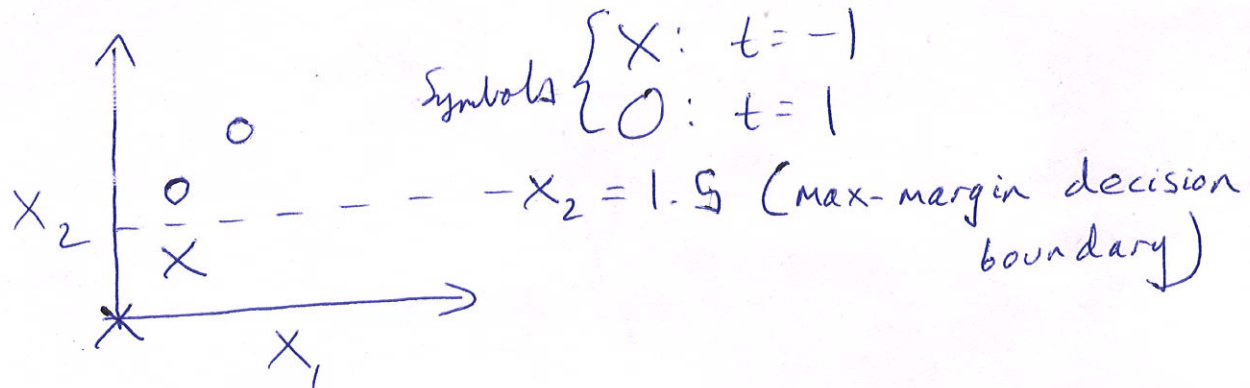 Symbols { X: t = -1
O: t = 1
X2
- X2 = 1.5 (max-margin decision
boundary)
X1